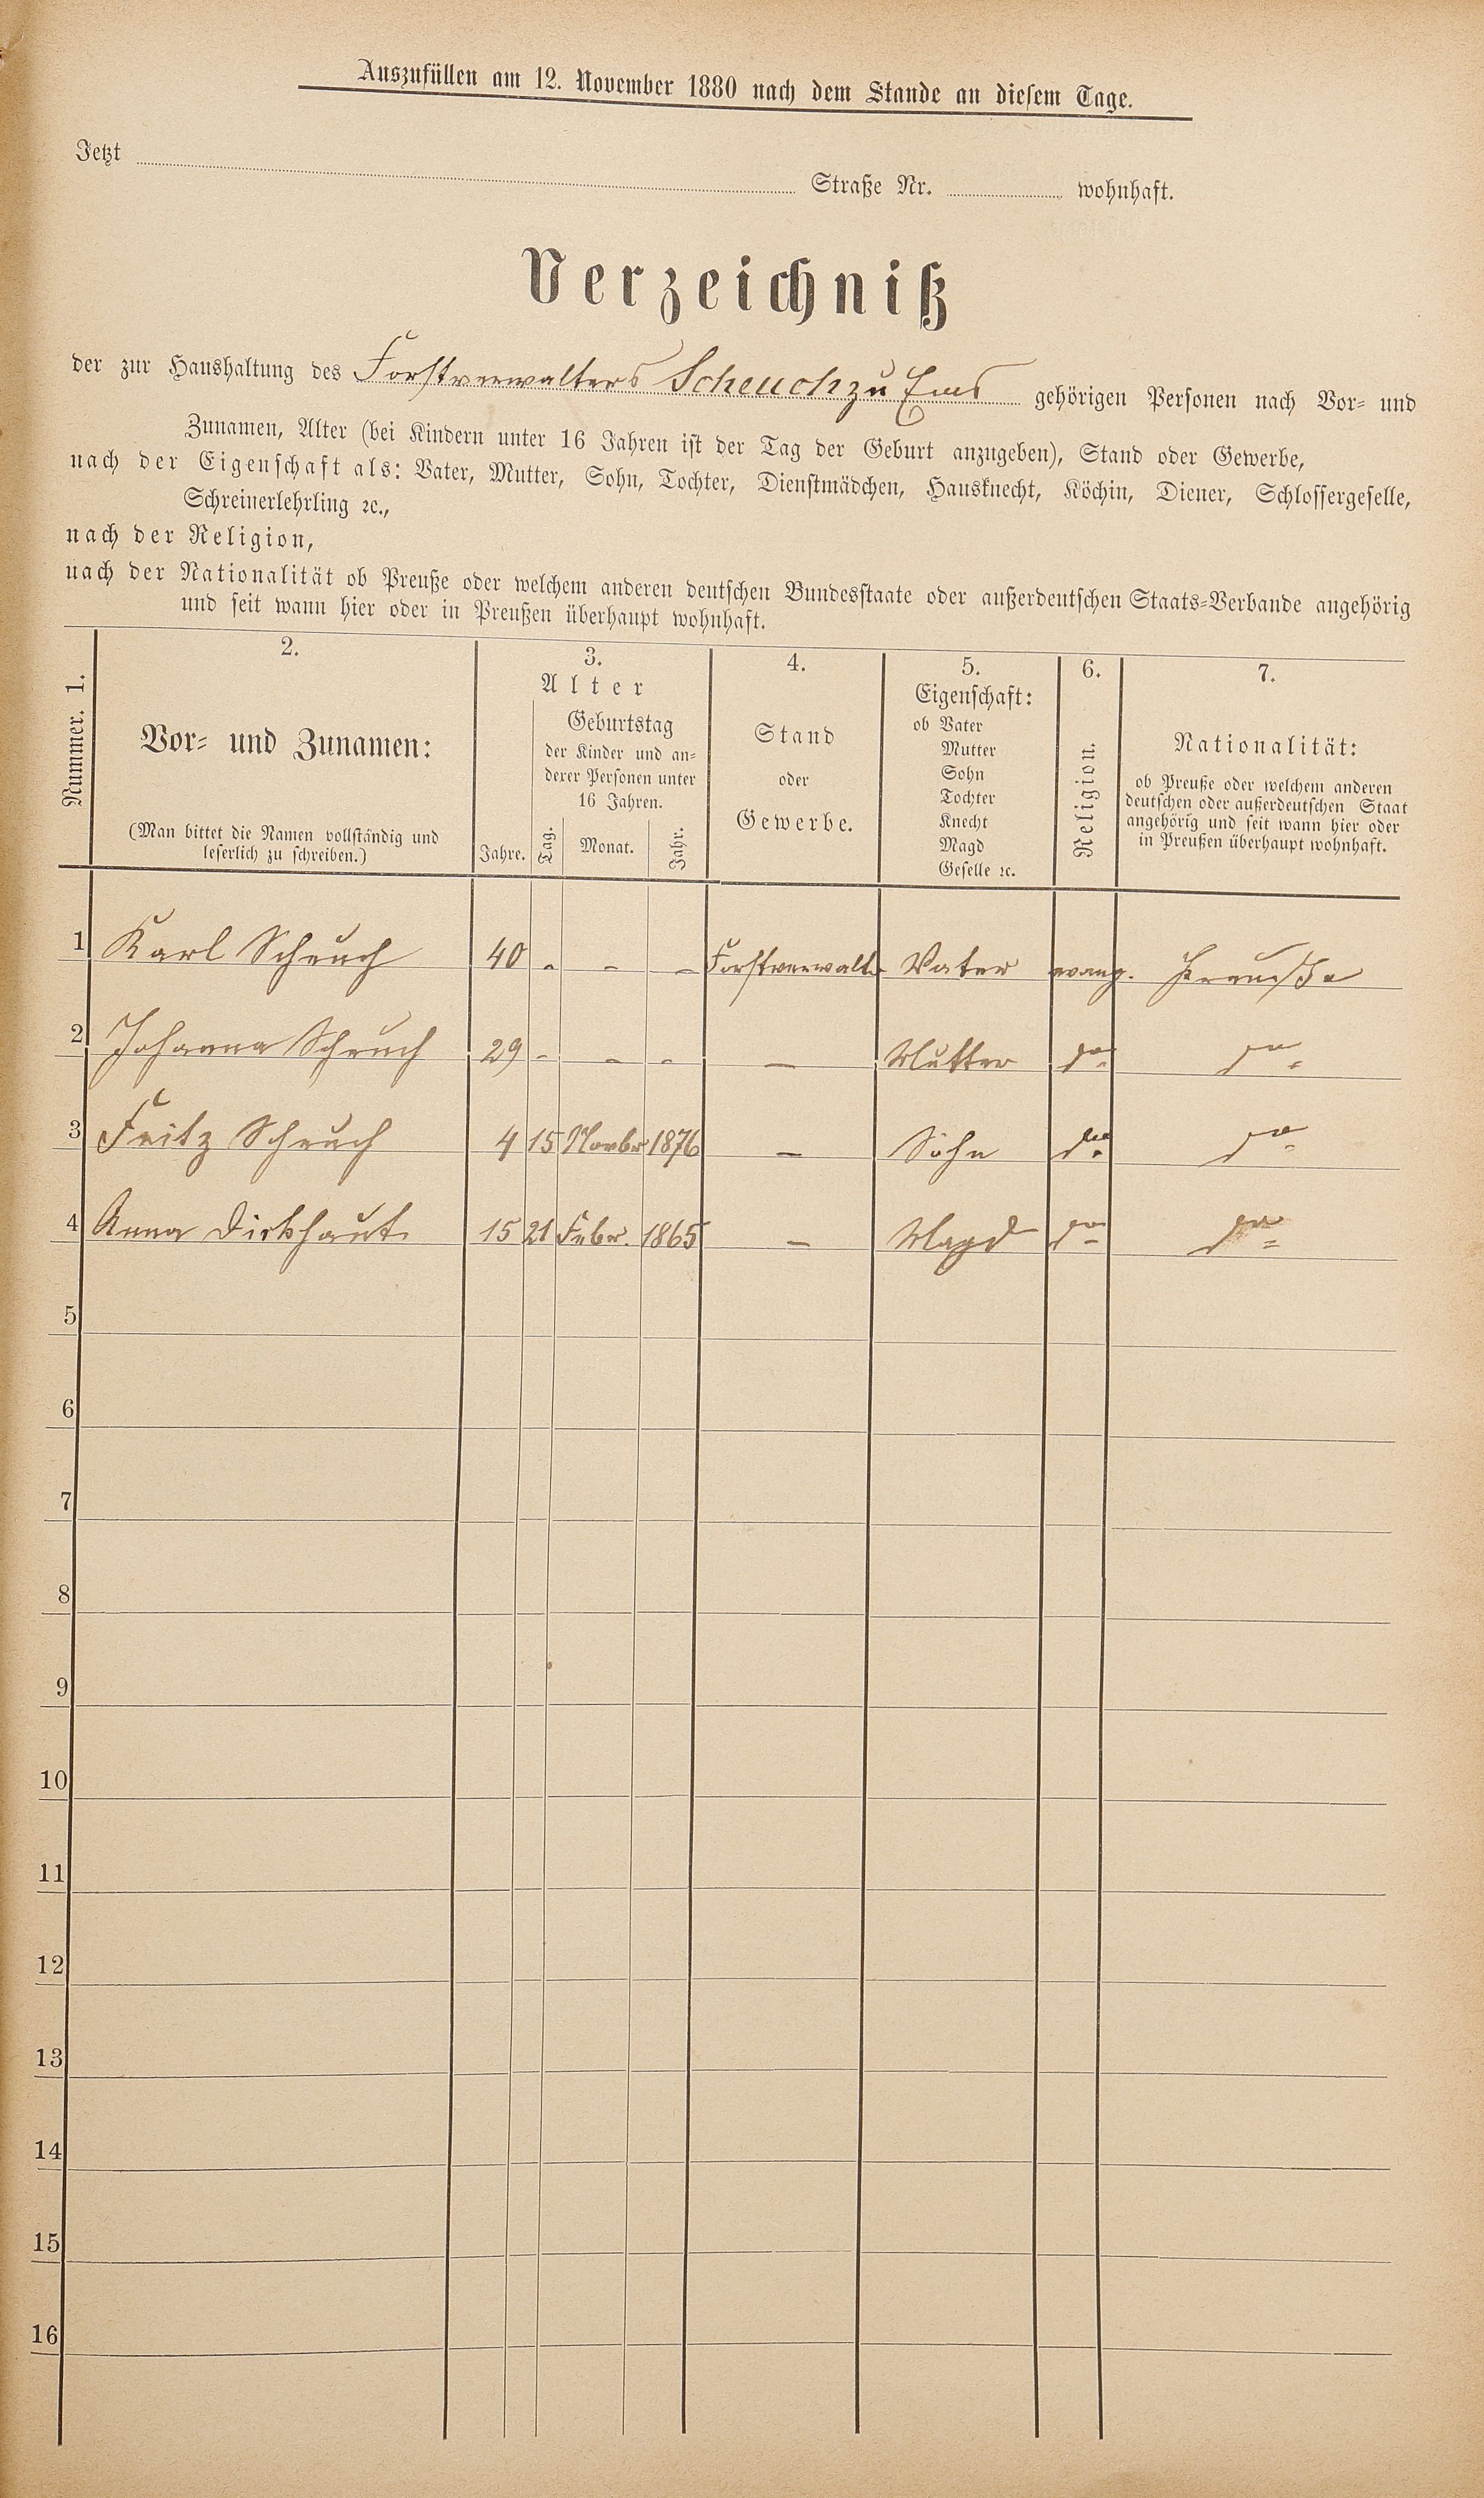 Auszufüllen am 12. November 1880 nach dem Stande an diesem Tage.
Jetzt Straße Nr. wohnhaft.
Verzeichniß
der zur Haushaltung des Forstverwalters Scheuch zu Ems gehörigen Personen nach Vor- und
Zunamen, Alter (bei Kindern unter 16 Jahren ist der Tag der Geburt anzugeben), Stand oder Gewerbe,
nach der Eigenschaft als: Vater, Mutter, Sohn, Tochter, Dienstmädchen, Hausknecht, Köchin, Diener, Schlossergeselle,
Schreinerlehrling ꝛc.,
nach der Religion,
nach der Nationalität ob Preuße oder welchem anderen deutschen Bundesstaate oder außerdeutschen Staats-Verbande angehörig
und seit wann hier oder in Preußen überhaupt wohnhaft.
Nummer. 1.
2.
Vor- und Zunamen:
(Man bittet die Namen vollständig und
leserlich zu schreiben.)
3.
Alter
Geburtstag
der Kinder und an-
derer Personen unter
16 Jahren.
Jahre. Tag. Monat. Jahr.
4.
Stand
oder
Gewerbe.
5.
Eigenschaft:
ob Vater
Mutter
Sohn
Tochter
Knecht
Magd
Geselle ꝛc.
6.
Religion.
7.
Nationalität:
ob Preuße oder welchem anderen
deutschen oder außerdeutschen Staat
angehörig und seit wann hier oder
in Preußen überhaupt wohnhaft.
1 Karl Scheuch 40 - - - Forstverwalter Vater evang. Preuße
2 Johanna Scheuch 29 - - - — Mutter do do
3 Fritz Scheuch 4 15 Novbr 1876 — Sohn do do
4 Anna 15 21 Febr. 1865 — Magd do do
5
6
7
8
9
10
11
12
13
14
15
16